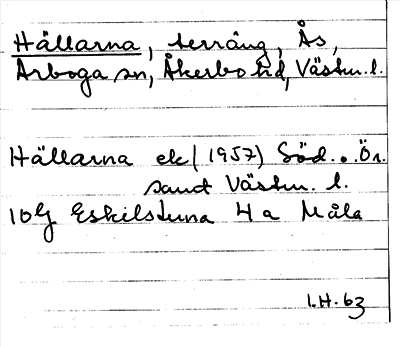 Hällarna, terräng, Ås,
Arboga sn, Åkerbo hd, Västm. l.
Hällarna ek (1957) Söd. o. Ör.
samt Västm. l.
10G Eskilstuna 4 a Måla
I.H. 63